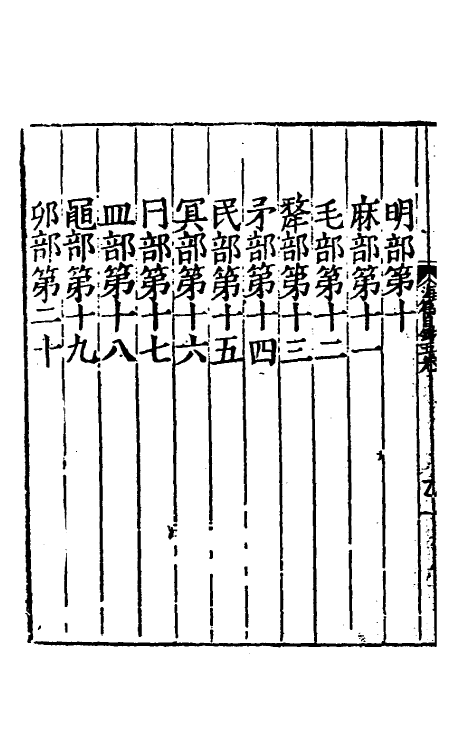 明部第十
麻部第十一
毛部第十二
犛部第十三
矛部第十四
民部第十五
冥部第十六
冃部第十七
皿部第十八
黽部第十九
卯部第二十